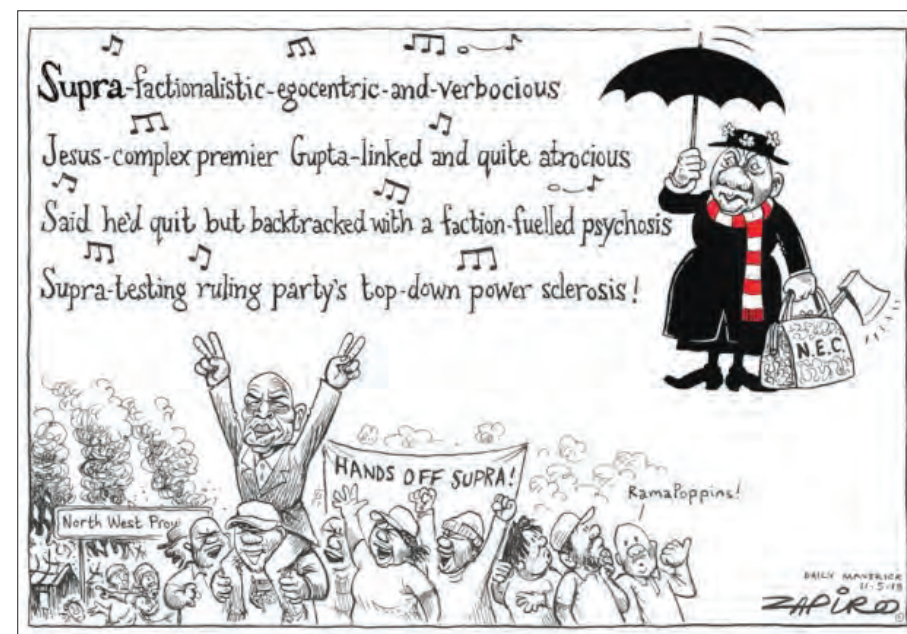 Supra-factionalistic-egocentric-and-verbocious
Jesus-complex premier Gupta-linked and quite atrocious
Said he'd quit but backtracked with a faction-fuelled psychosis
Supra-testing ruling party's top-down power sclerosis!
N.E.C.
HANDS OFF SUPRA!
RamaPoppins!
North West Prov
DAILY MAVERICK
11-5-18
ZAPIRO